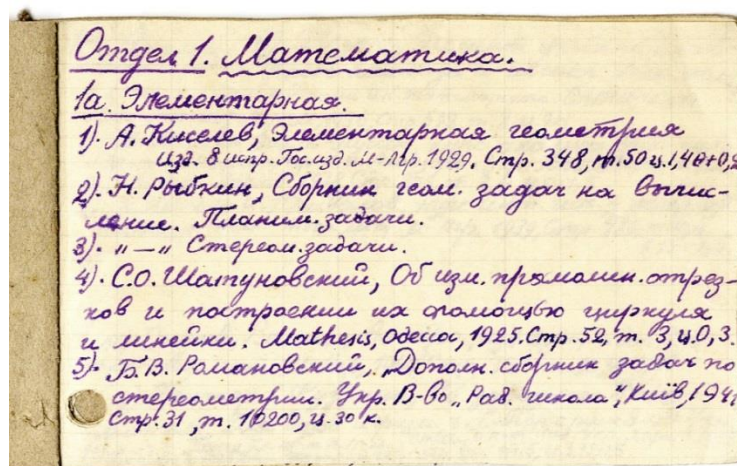 Отдел 1. Математика.
1а. Элементарная.
1). А. Киселев, Элементарная геометрия
изд. 8 испр. Гос. изд. М-Лгр. 1929. Стр. 348, т. 50 ц. 1,40+0,2
2). Н. Рыбкин, Сборник геом. задач на вычис-
ление. Планим. задачи.
3). "—" Стереом. задачи.
4). С.О. Шатуновский, Об изм. прямолин. отрез-
ков и построении их помощью циркуля
и линейки. Mathesis, Одесса, 1925. Стр. 52, т. 3, ц. 0,3.
5). Б.В. Романовский, Дополн. сборник задач по
стереометрии. Укр. В-во „Рад. школа", Київ, 194
Стр. 31, т. 10200, ц. 30 к.